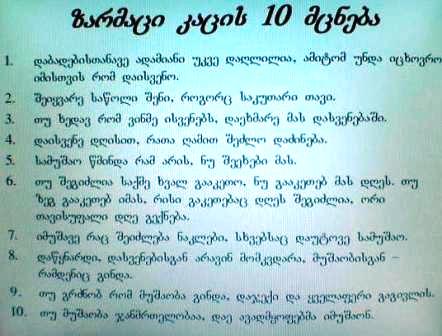 ზარმაცი კაცის 10 მცნება
1. დაბადებისთანავე ადამიანი უკვე დაღლილია, ამიტომ უნდა იცხოვრო
იმისთვის რომ დაისვენო.
2. შეიყვარე საწოლი შენი, როგორც საკუთარი თავი.
3. თუ ხედავ რომ ვინმე ისვენებს, დაეხმარე მას დასვენებაში.
4. დაისვენე დღისით, რათა ღამით შეძლო დაძინება.
5. სამუშაო წმინდა რამ არის, ნუ შეეხები მას.
6. თუ შეგიძლია საქმე ხვალ გააკეთო, ნუ გააკეთებ მას დღეს. თუ
ზეგ გააკეთებ იმას, რისი გაკეთებაც დღეს შეგიძლია, ორი
თავისუფალი დღე გექნება.
7. იმუშავე რაც შეიძლება ნაკლები, სხვებსაც დაუტოვე სამუშაო.
8. დაწყნარდი, დასვენებისგან არავინ მომკვდარა, მუშაობისგან –
რამდენიც გინდა.
9. თუ გრძნობ რომ მუშაობა გინდა, დაჯექი და ყველაფერი გაგივლის.
10. თუ მუშაობა ჯანმრთელობაა, დაე ავადმყოფებმა იმუშაონ.